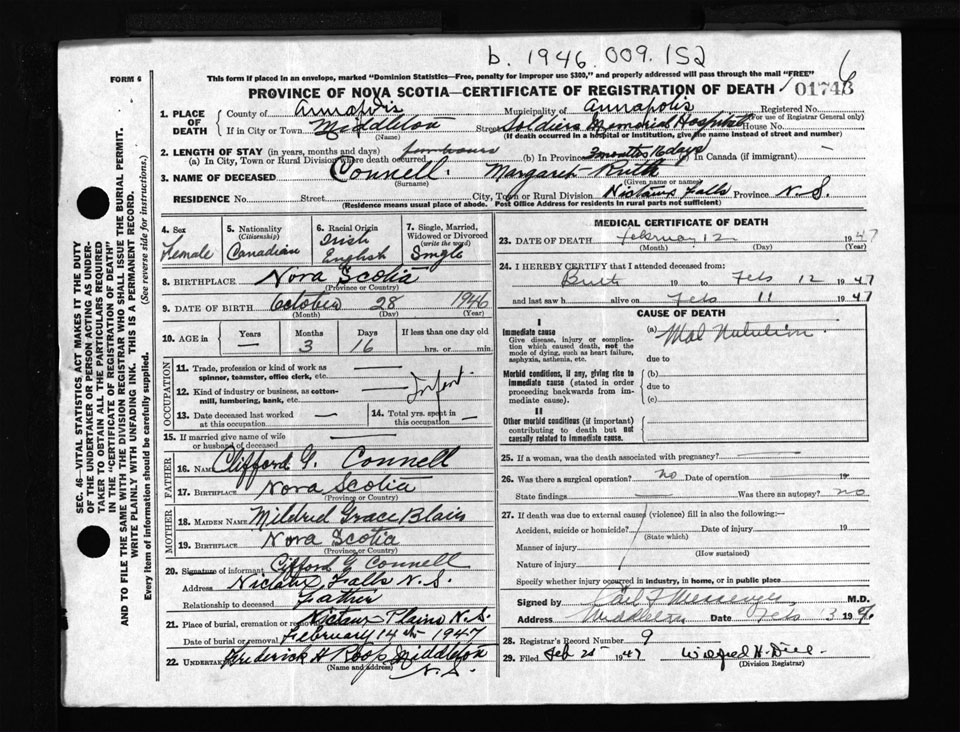 b. 1946. 009. 152
6
FORM 6
This form if placed in an envelope, marked "Dominion Statistics—Free, penalty for improper use $300," and properly addressed will pass through the mail "FREE"
PROVINCE OF NOVA SCOTIA—CERTIFICATE OF REGISTRATION OF DEATH
01746
1. PLACE OF DEATH
County of Annapolis Municipality of Annapolis Registered No.
(For use of Registrar General only)
If in City or Town Middleton Street Soldiers Memorial Hospital House No.
(Name) (If death occurred in a hospital or institution, give the name instead of street and number)
2. LENGTH OF STAY (in years, months and days)
(a) In City, Town or Rural Division where death occurred hours (b) In Province 3 months 16 days (c) In Canada (if immigrant) —
3. NAME OF DECEASED Connell. Margaret Ruth
(Surname) (Given name or names)
RESIDENCE No. Street City, Town or Rural Division Nictaux Falls Province N.S.
(Residence means usual place of abode. Post Office Address for residents in rural parts not sufficient)
4. Sex Female
5. Nationality (Citizenship) Canadian
6. Racial Origin Irish English
7. Single, Married, Widowed or Divorced (write the word) Single
8. BIRTHPLACE Nova Scotia
(Province or Country)
9. DATE OF BIRTH October 28 1946
(Month) (Day) (Year)
10. AGE in Years — Months 3 Days 16 If less than one day old hrs. or min.
OCCUPATION
11. Trade, profession or kind of work as spinner, teamster, office clerk, etc.
12. Kind of industry or business, as cotton-mill, lumbering, bank, etc. Infant
13. Date deceased last worked at this occupation —
14. Total yrs. spent in this occupation —
15. If married give name of wife or husband of deceased —
FATHER
16. NAME Clifford G. Connell
17. BIRTHPLACE Nova Scotia
(Province or Country)
MOTHER
18. MAIDEN NAME Mildred Grace Blair
19. BIRTHPLACE Nova Scotia
(Province or Country)
20. Signature of informant Clifford G Connell
Address Nictaux Falls N.S.
Relationship to deceased Father
21. Place of burial, cremation or removal Nictaux Plains N.S.
Date of burial or removal February 14th 1947
22. Undertaker Frederick H Roop Middleton N.S.
(Name and address)
MEDICAL CERTIFICATE OF DEATH
23. DATE OF DEATH February 12 1947
(Month) (Day) (Year)
24. I HEREBY CERTIFY that I attended deceased from:
Birth 19 to Feb 12 1947
and last saw h alive on Feb 11 1947
CAUSE OF DEATH
I
Immediate cause
Give disease, injury or complication which caused death, not the mode of dying, such as heart failure, asphyxia, asthenia, etc.
(a) Mal Nutrition
due to
Morbid conditions, if any, giving rise to immediate cause (stated in order proceeding backwards from immediate cause).
(b)
due to
(c)
II
Other morbid conditions (if important) contributing to death but not causally related to immediate cause.
25. If a woman, was the death associated with pregnancy? —
26. Was there a surgical operation? no Date of operation 19
State findings — Was there an autopsy? no
27. If death was due to external causes (violence) fill in also the following:—
Accident, suicide or homicide? Date of injury 19
(State which)
Manner of injury
(How sustained)
Nature of injury
Specify whether injury occurred in industry, in home, or in public place
Signed by Messenger M.D.
Address Middleton Date Feb 13 19
28. Registrar's Record Number 9
29. Filed Feb 25 1947 Wilfred H.
(Division Registrar)
SEC. 46—VITAL STATISTICS ACT MAKES IT THE DUTY
OF THE UNDERTAKER OR PERSON ACTING AS UNDER-
TAKER TO OBTAIN ALL THE PARTICULARS REQUIRED
IN THE "CERTIFICATE OF REGISTRATION OF DEATH"
AND TO FILE THE SAME WITH THE DIVISION REGISTRAR WHO SHALL ISSUE THE BURIAL PERMIT.
WRITE PLAINLY WITH UNFADING INK. THIS IS A PERMANENT RECORD.
Every item of information should be carefully supplied. (See reverse side for instructions.)